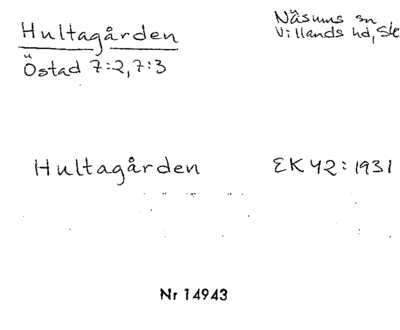 Hultagården
Näsums sn
Villands hd, Sk
Östad 7:2, 7:3
Hultagården
EK 42: 1931
Nr 14943